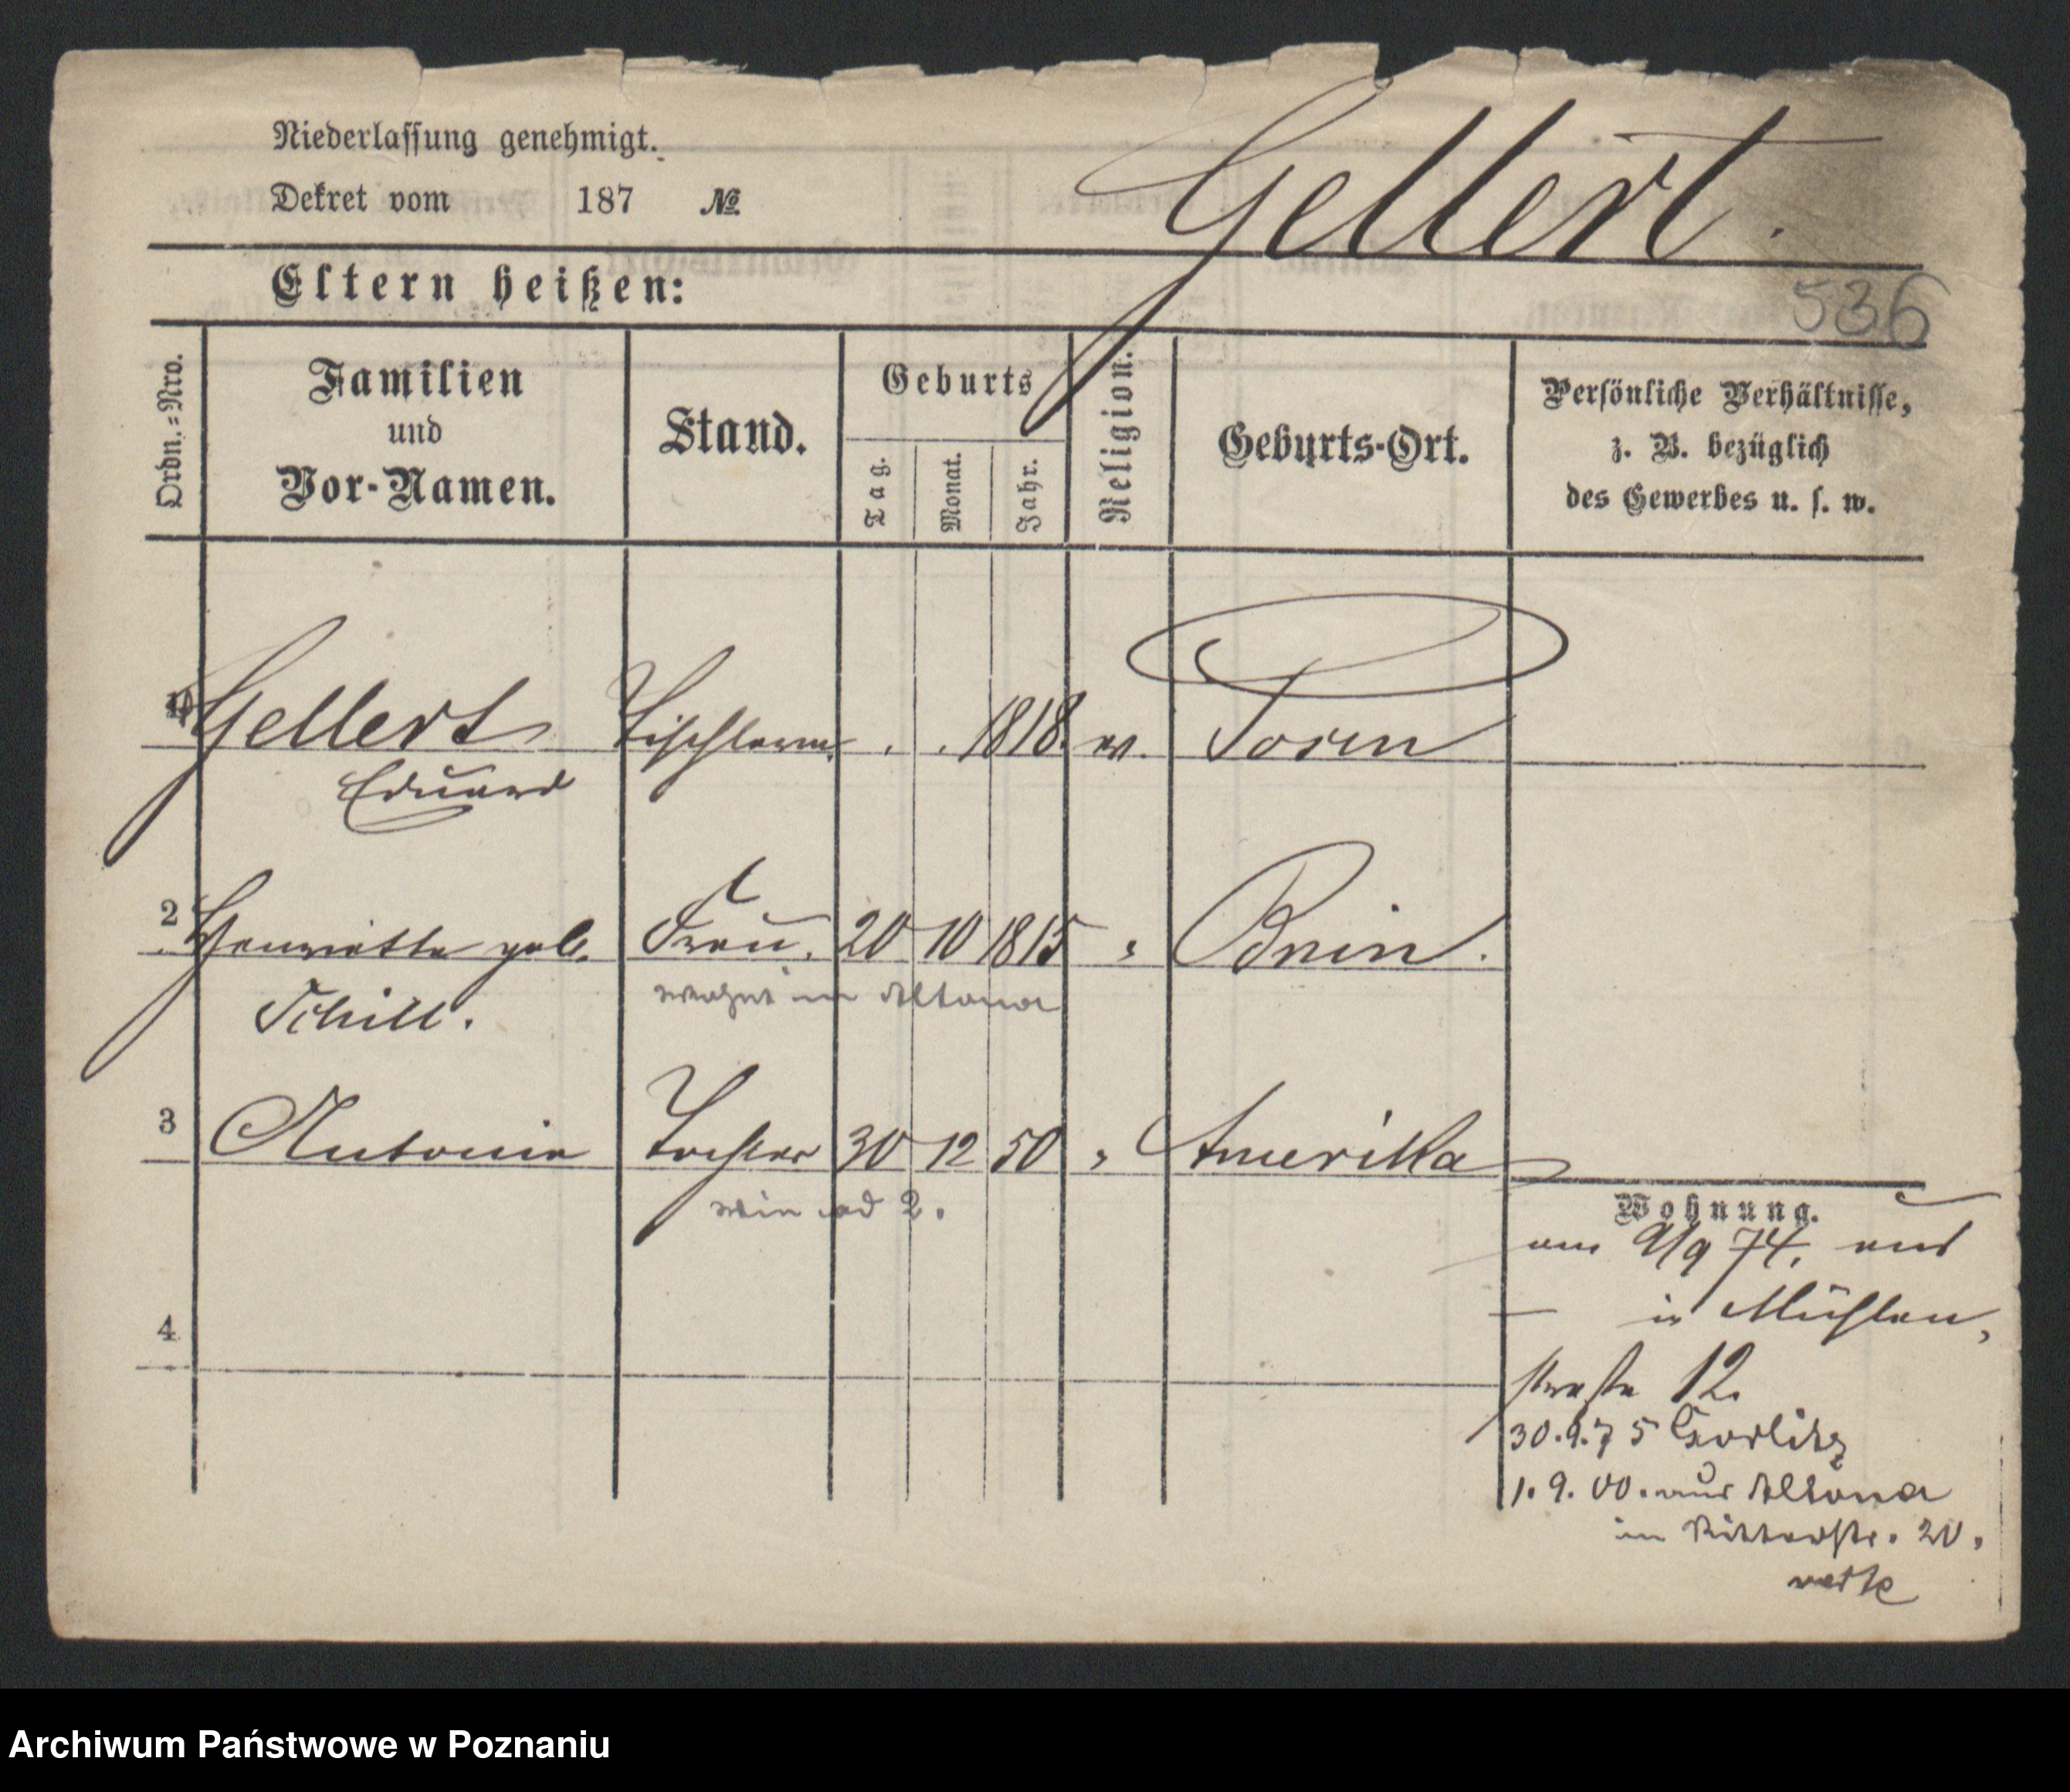 Niederlassung genehmigt.
Dekret vom 187 №
Gellert.
Eltern heißen:
536
Ordn.-Nro.
Familien
und
Vor-Namen.
Stand.
Geburts
Tag.
Monat.
Jahr.
Religion.
Geburts-Ort.
Persönliche Verhältnisse,
z. B. bezüglich
des Gewerbes u. s. w.
1 Gellert Tischlerm. . . 1818. ev. Posen
Eduard
2 Henriette geb. Frau. 20 10 1815 " Bnin.
Schill. wohnt in Altona
3 Antonie Tochter 30 12 50 " Amerika
wie ad 2.
Wohnung.
am 9/9 74. aus
in Mühlen,
4
straße 12.
30.9.75 Görlitz
1. 9. 00. aus Altona
im Ritterstr. 20.
Archiwum Państwowe w Poznaniu